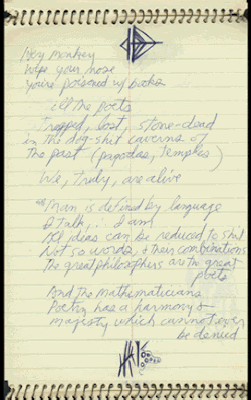 Hey monkey
Wipe your nose
You're poisoned w/ books
All the poets
Trapped, lost, stone-dead
in the dog-shit caverns of
the past (pagodas, temples)
We, truly, are alive
Man is defined by language
I talk, ∴ I am
All ideas can be reduced to shit
Not so words, & their combinations
The great philosophers are the great
poets
And the mathematicians
Poetry has a harmony &
majesty which cannot ever
be denied